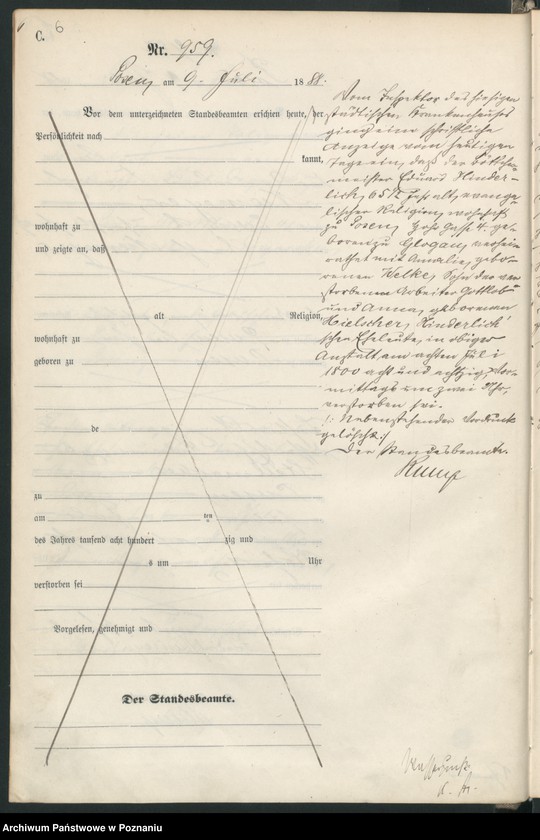 C. 6
Nr. 959.
Posen, am 9. Juli 1888.
Vor dem unterzeichneten Standesbeamten erschien heute, der
Persönlichkeit nach
kannt,
wohnhaft zu
und zeigte an, daß
alt Religion,
wohnhaft zu
geboren zu
de
zu
am ten
des Jahres tausend acht hundert zig und
s um Uhr
verstorben sei
Vorgelesen, genehmigt und
Der Standesbeamte.
Vom Inspektor des hiesigen
städtischen Krankenhauses
ging eine schriftliche
Anzeige vom heutigen
Tage ein, daß der Böttcher-
meister Eduard Kinder-
lich, 65 ½ Jahr alt, evange-
lischer Religion, wohnhaft
zu Posen, Gasse 4, ge-
boren zu Glogau, verhei-
rathet mit Amalie, gebo-
renen Welke, Sohn der ver-
storbenen Arbeiter Gottlob
und Anna, geborenen
Hielscher, Kinderlich'
schen Eheleute, in obiger
Anstalt am achten Juli
1800 acht und achtzig, Vor-
mittags um zwei Uhr,
verstorben sei.
/: Nebenstehender Vordruck
gelöscht :/
Der Standesbeamte.
Archiwum Państwowe w Poznaniu